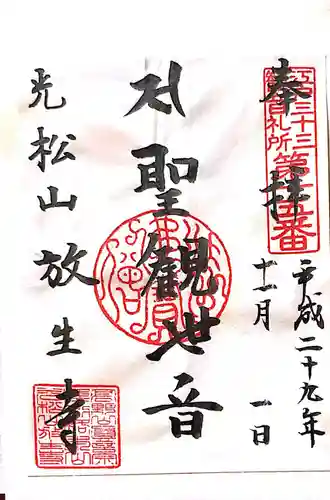 奉拝
江戸三十三
観音札所
第十五番
平成二十九年
十一月 一日
聖觀世音
光松山放生寺